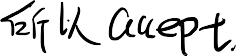 所以 accept.